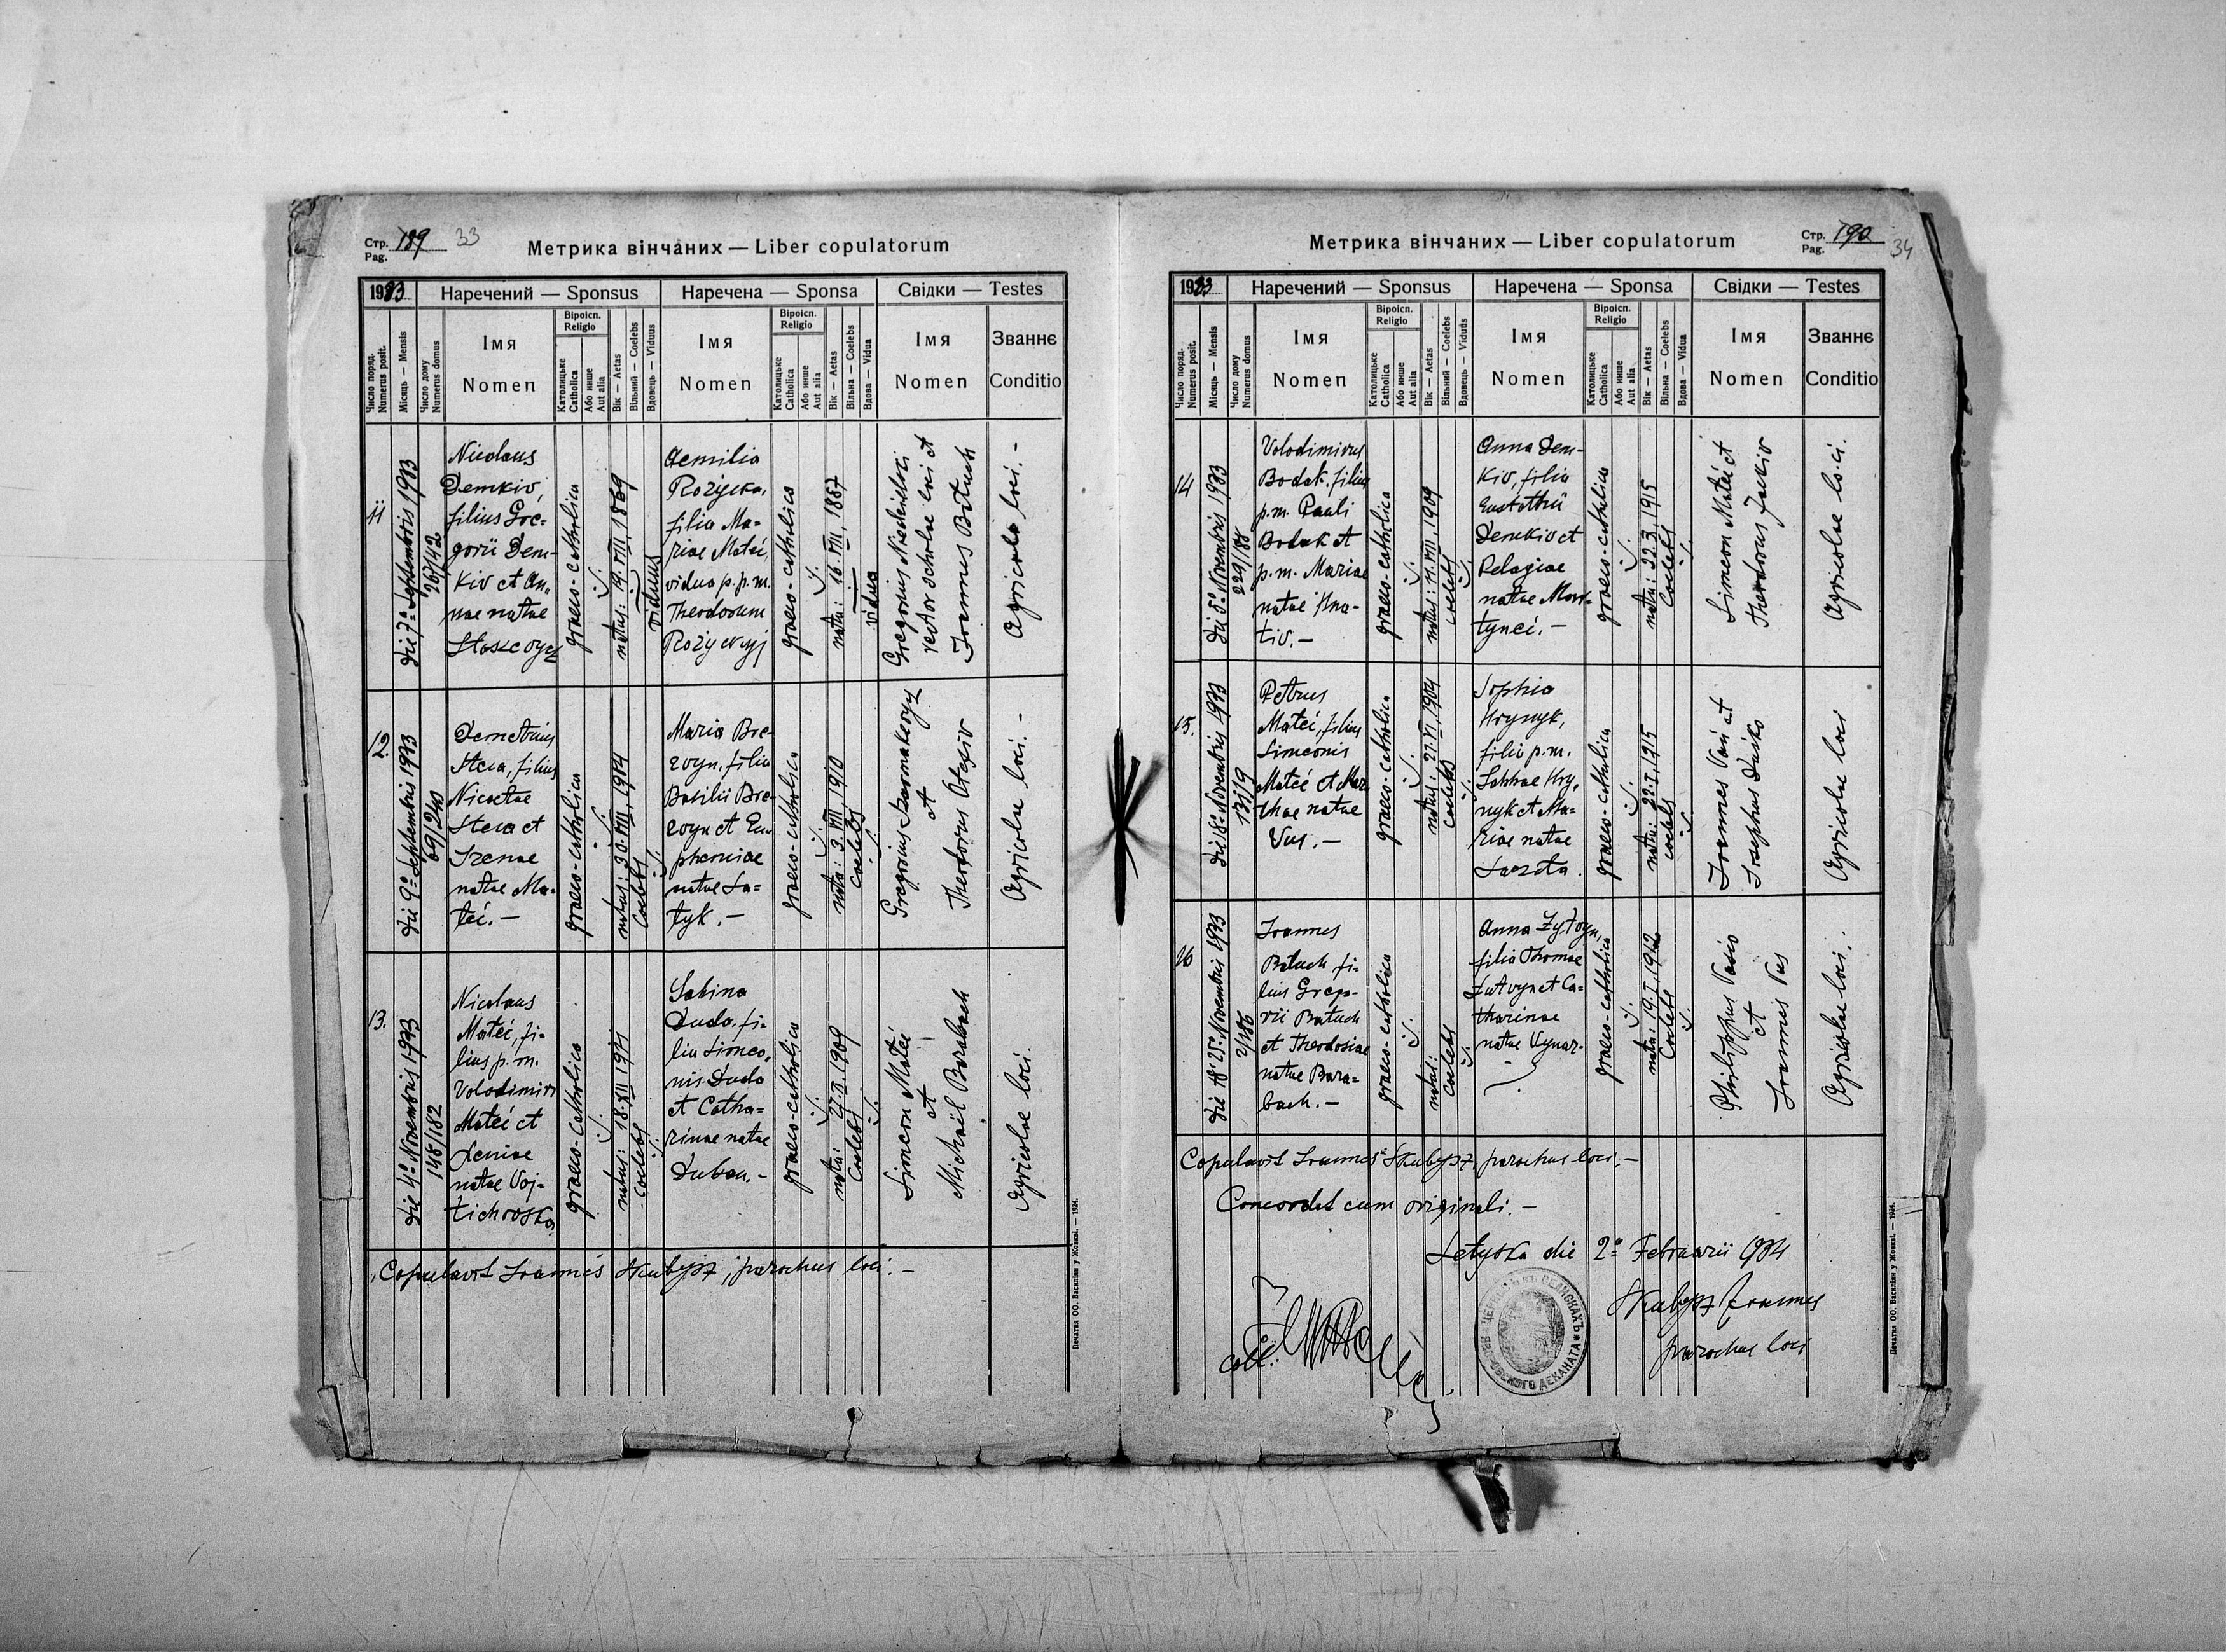 Стр. Pag. 189 33
Метрика вінчаних — Liber copulatorum
1933
Наречений — Sponsus
Наречена — Sponsa
Свідки — Testes
Число поряд. Numerus posit.
Місяць — Mensis
Число дому Numerus domus
Імя
Nomen
Віроісп. Religio
Католицьке Catholica
Або инше Aut alia
Вік — Aetas
Вільний — Coelebs
Вдовець — Viduus
Імя
Nomen
Віроісп. Religio
Католицьке Catholica
Або инше Aut alia
Вік — Aetas
Вільна — Coelebs
Вдова — Vidua
Імя
Nomen
Званнє
Conditio
11
die 7º Septembris 1933
Nicolaus
Demkiv,
filius Gre-
gorii Dem-
kiv et An-
nae natae
graeco-catholica
viduus
Aemilia
Rożycka,
filia Ma-
riae Mateї,
vidua p.p.m.
Theodorum
Rożyckyj
graeco-catholica
vidua
Gregorius
rector scholae loci et
Joannes Batuch
Agricola loci.-
12.
die 9º Septembris 1933
69/240
Demetrius
filius
et
Irenae
natae Ma-
teї.-
graeco-catholica
natus: 30.VIII.1914
Coelebs
Maria Bre-
zvyn, filia
Basilii Bre-
zvyn et Eu-
phemiae
natae La-
tyk.-
graeco-catholica
nata: 3.VIII.1910
Coelebs
Gregorius
et
Theodorus
Agricolae loci.-
13.
die 4º Novembris 1933
148/182
Nicolaus
Mateї, fi-
lius p.m.
Volodimiri
Mateї et
Xeniae
natae Voj-
graeco-catholica
natus: 18.XII 1911
Coelebs
Sabina
Duda, fi-
lia Simeo-
nis Duda
et Catha-
rinae natae
Duban.-
graeco-catholica
Coelebs
Simeon Mateї
et
Michaël Barabach
Agricolae loci.
Copulavit Joannes Skubysz, parochus loci.-
Печатня ОО. Василіян у Жовкві. — 1924.
Стр. Pag. 190 34
Метрика вінчаних — Liber copulatorum
1933
Наречений — Sponsus
Наречена — Sponsa
Свідки — Testes
Число поряд. Numerus posit.
Місяць — Mensis
Число дому Numerus domus
Імя
Nomen
Віроісп. Religio
Католицьке Catholica
Або инше Aut alia
Вік — Aetas
Вільний — Coelebs
Вдовець — Viduus
Імя
Nomen
Віроісп. Religio
Католицьке Catholica
Або инше Aut alia
Вік — Aetas
Вільна — Coelebs
Вдова — Vidua
Імя
Nomen
Званнє
Conditio
14
die 5º Novembris 1933
229/88
Volodimirus
Bodak, filius
p.m. Pauli
Bodak et
p.m. Mariae
natae Hna-
tiv.-
graeco-catholica
natus: 11.VIII.1909
Coelebs
Anna Dem-
kiv, filia
Eustathii
Demkiv et
Pelagiae
natae Mar-
tyneć.-
graeco-catholica
Coelebs
Simeon Mateї et
Theodorus Jackiv
Agricolae loci.
15.
die 8º Novembris 1933
131/9
Petrus
Mateї, filius
Simeonis
Mateї et Mar-
thae natae
Vus.-
graeco-catholica
natus: 27.VI.1904
Coelebs
Sophia
Hrynyk,
filia p.m.
Sabbae Hry-
nyk et Ma-
riae natae
graeco-catholica
nata: 22.I.1915
coelebs
Joannes et
Josephus
Agricolae loci
16
Novembris 1933
2/186
Joannes
Batuch, fi-
lius Grego-
rii Batuch
et Theodosiae
natae Bara-
bach.-
graeco-catholica
natus:
Coelebs
Anna Żytvyn,
filia Thomae
et Ca-
tharinae
natae Vynar-
graeco-catholica
nata: 19.I.1912
Coelebs
Philippus
et
Joannes Vus
Agricolae loci.
Copulavit Joannes Skubysz, parochus loci.-
Concordat cum originali.-
Letyska die 2º Februarii 1934
Skubysz Joannes
parochus loci
ДЕКАНАТА
Печатня ОО. Василіян у Жовкві. — 1924.